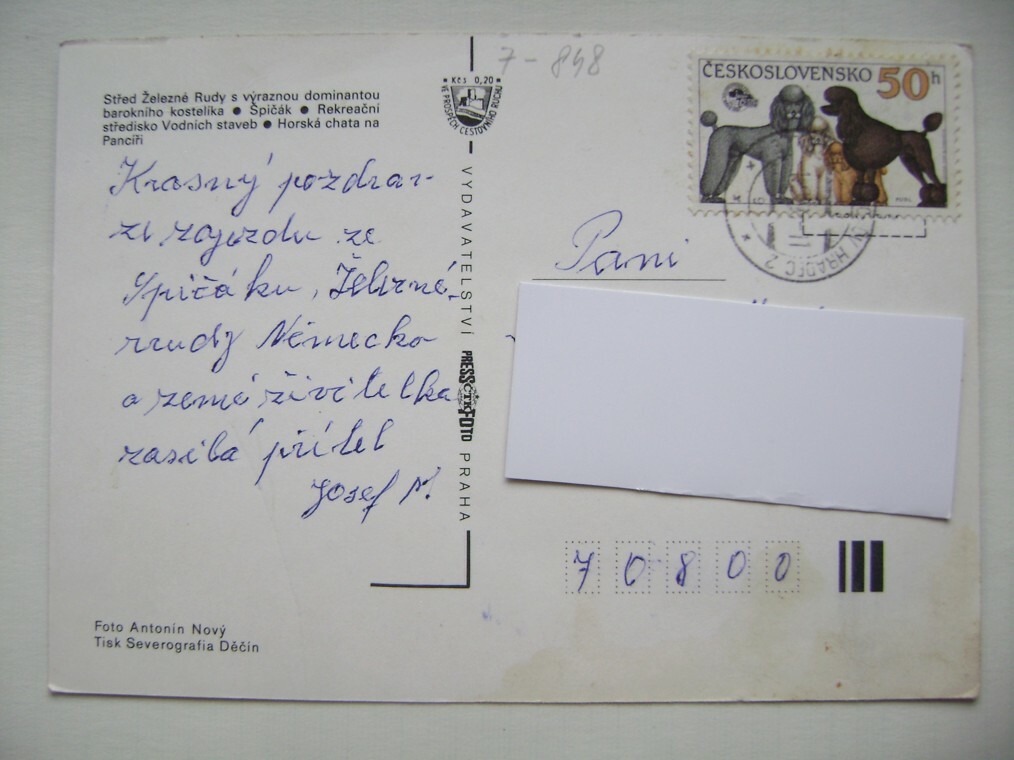 7-848
Střed Železné Rudy s výraznou dominantou
barokního kostelíka ● Špičák ● Rekreační
středisko Vodních staveb ● Horská chata na
Pancíři
Krasný pozdrav
ze zajezdu ze
Špičáku, Železné
rudy Německa
a země živitelka
zasilá přítel
Josef M.
Foto Antonín Nový
Tisk Severografia Děčín
* Kčs 0,20 *
VE PROSPĚCH CESTOVNÍHO RUCHU
VYDAVATELSTVÍ PRESSFOTO PRAHA
ČTK
ČESKOSLOVENSKO 50h
HRADEC 2
Paní
70800